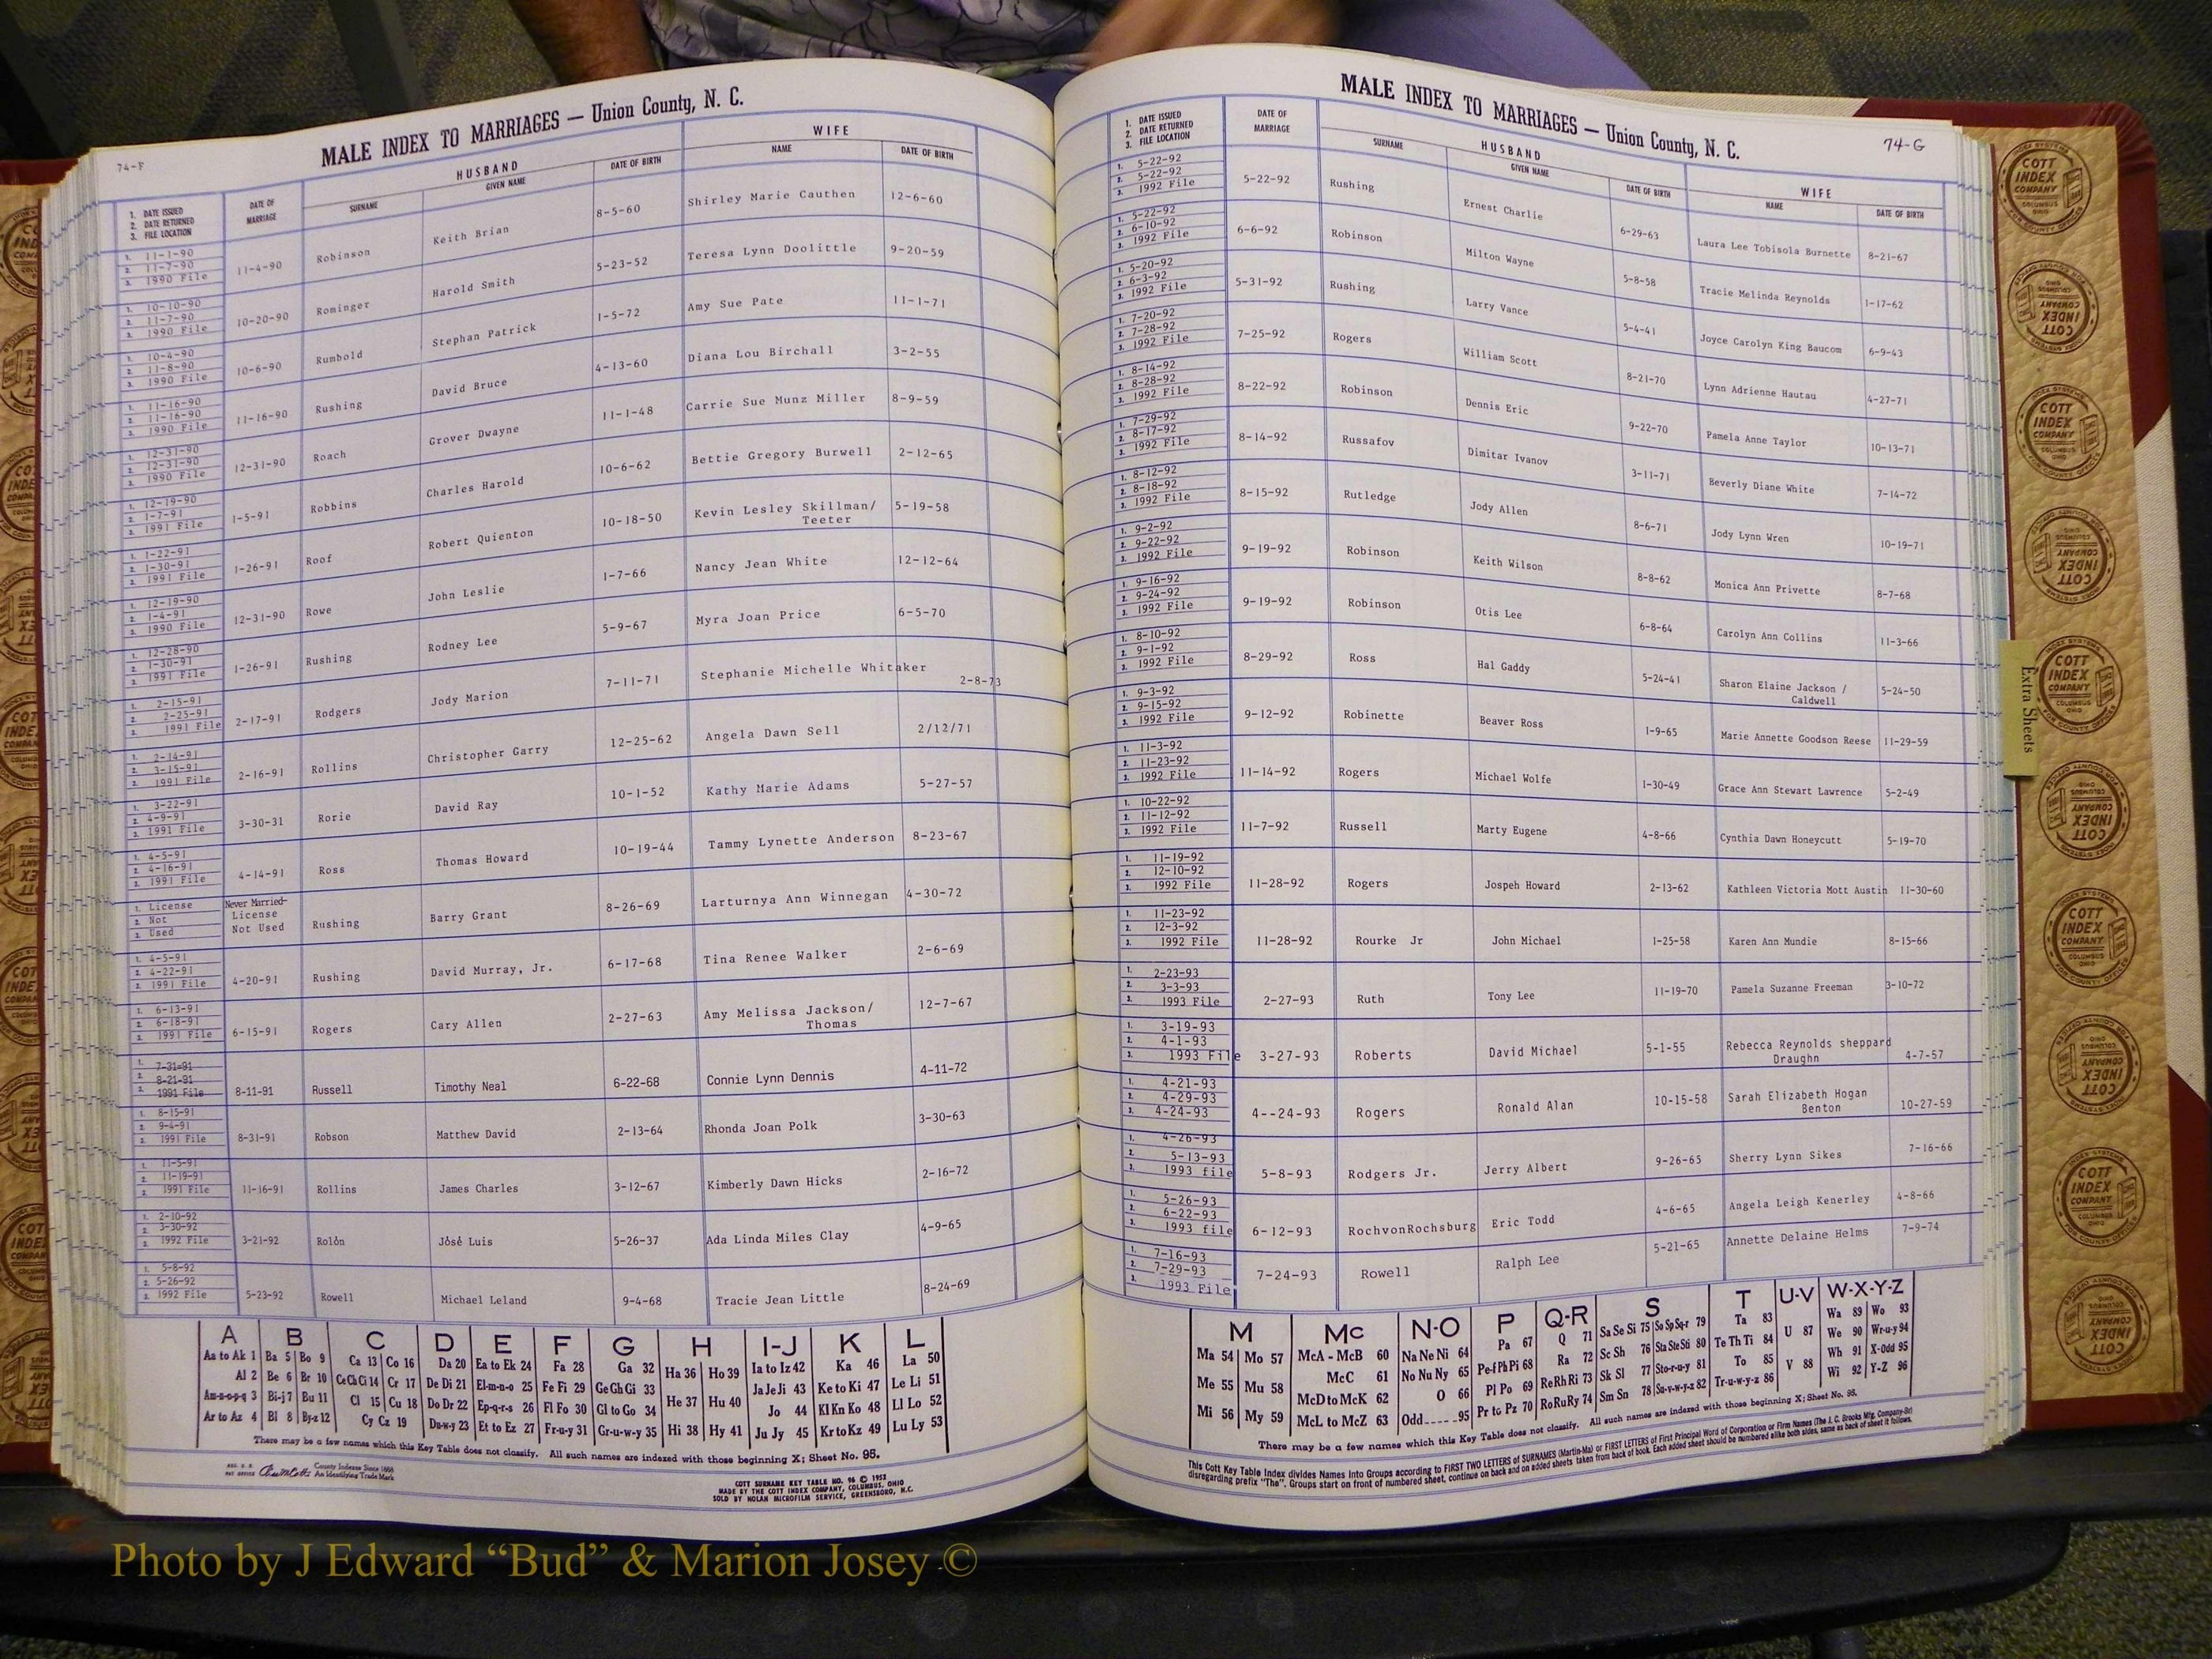 74-F
MALE INDEX TO MARRIAGES — Union County, N. C.
1. DATE ISSUED
2. DATE RETURNED
3. FILE LOCATION
DATE OF MARRIAGE
HUSBAND
SURNAME GIVEN NAME DATE OF BIRTH
WIFE
NAME DATE OF BIRTH
1. 11-1-90
2. 11-7-90
3. 1990 File
11-4-90 Robinson Keith Brian 8-5-60 Shirley Marie Cauthen 12-6-60
1. 10-10-90
2. 11-7-90
3. 1990 File
10-20-90 Rominger Harold Smith 5-23-52 Teresa Lynn Doolittle 9-20-59
1. 10-4-90
2. 11-8-90
3. 1990 File
10-6-90 Rumbold Stephan Patrick 1-5-72 Amy Sue Pate 11-1-71
1. 11-16-90
2. 11-16-90
3. 1990 File
11-16-90 Rushing David Bruce 4-13-60 Diana Lou Birchall 3-2-55
1. 12-31-90
2. 12-31-90
3. 1990 File
12-31-90 Roach Grover Dwayne 11-1-48 Carrie Sue Munz Miller 8-9-59
1. 12-19-90
2. 1-7-91
3. 1991 File
1-5-91 Robbins Charles Harold 10-6-62 Bettie Gregory Burwell 2-12-65
1. 1-22-91
2. 1-30-91
3. 1991 File
1-26-91 Roof Robert Quienton 10-18-50 Kevin Lesley Skillman/ 5-19-58
Teeter
1. 12-19-90
2. 1-4-91
3. 1990 File
12-31-90 Rowe John Leslie 1-7-66 Nancy Jean White 12-12-64
1. 12-28-90
2. 1-30-91
3. 1991 File
1-26-91 Rushing Rodney Lee 5-9-67 Myra Joan Price 6-5-70
1. 2-15-91
2. 2-25-91
3. 1991 File
2-17-91 Rodgers Jody Marion 7-11-71 Stephanie Michelle Whitaker
2-8-73
1. 2-14-91
2. 3-15-91
3. 1991 File
2-16-91 Rollins Christopher Garry 12-25-62 Angela Dawn Sell 2/12/71
1. 3-22-91
2. 4-9-91
3. 1991 File
3-30-31 Rorie David Ray 10-1-52 Kathy Marie Adams 5-27-57
1. 4-5-91
2. 4-16-91
3. 1991 File
4-14-91 Ross Thomas Howard 10-19-44 Tammy Lynette Anderson 8-23-67
1. License
2. Not
3. Used
Never Married-
License
Not Used
Rushing Barry Grant 8-26-69 Larturnya Ann Winnegan 4-30-72
1. 4-5-91
2. 4-22-91
3. 1991 File
4-20-91 Rushing David Murray, Jr. 6-17-68 Tina Renee Walker 2-6-69
1. 6-13-91
2. 6-18-91
3. 1991 File
6-15-91 Rogers Cary Allen 2-27-63 Amy Melissa Jackson/ 12-7-67
Thomas
1. 7-31-91
2. 8-21-91
3. 1991 File
8-11-91 Russell Timothy Neal 6-22-68 Connie Lynn Dennis 4-11-72
1. 8-15-91
2. 9-4-91
3. 1991 File
8-31-91 Robson Matthew David 2-13-64 Rhonda Joan Polk 3-30-63
1. 11-5-91
2. 11-19-91
3. 1991 File
11-16-91 Rollins James Charles 3-12-67 Kimberly Dawn Hicks 2-16-72
1. 2-10-92
2. 3-30-92
3. 1992 File
3-21-92 Rolón José Luis 5-26-37 Ada Linda Miles Clay 4-9-65
1. 5-8-92
2. 5-26-92
3. 1992 File
5-23-92 Rowell Michael Leland 9-4-68 Tracie Jean Little 8-24-69
A B C D E F G H I-J K L
Aa to Ak 1 Ba 5 Bo 9 Ca 13 Co 16 Da 20 Ea to Ek 24 Fa 28 Ga 32 Ha 36 Ho 39 Ia to Iz 42 Ka 46 La 50
Al 2 Be 6 Br 10 Ce Ch Ci 14 Cr 17 De Di 21 El-m-n-o 25 Fe Fi 29 Ge Gh Gi 33 Ja Je Ji 43 Ke to Ki 47 Le Li 51
Am-n-o-p-q 3 Bi-j 7 Bu 11 Cl 15 Cu 18 Do Dr 22 Ep-q-r-s 26 Fl Fo 30 Gl to Go 34 He 37 Hu 40 Jo 44 Kl Kn Ko 48 Ll Lo 52
Ar to Az 4 Bl 8 By-z 12 Cy Cz 19 Du-w-y 23 Et to Ez 27 Fr-u-y 31 Gr-u-w-y 35 Hi 38 Hy 41 Ju Jy 45 Kr to Kz 49 Lu Ly 53
There may be a few names which this Key Table does not classify. All such names are indexed with those beginning X; Sheet No. 95.
County Indexes Since 1888
An Identifying Trade Mark
COTT SURNAME KEY TABLE NO. 96 © 1952
MADE BY THE COTT INDEX COMPANY, COLUMBUS, OHIO
SOLD BY NOLAN MICROFILM SERVICE, GREENSBORO, N.C.
MALE INDEX TO MARRIAGES — Union County, N. C.
74-G
1. DATE ISSUED
2. DATE RETURNED
3. FILE LOCATION
DATE OF MARRIAGE
HUSBAND
SURNAME GIVEN NAME DATE OF BIRTH
WIFE
NAME DATE OF BIRTH
1. 5-22-92
2. 5-22-92
3. 1992 File
5-22-92 Rushing Ernest Charlie 6-29-63 Laura Lee Tobisola Burnette 8-21-67
1. 5-22-92
2. 6-10-92
3. 1992 File
6-6-92 Robinson Milton Wayne 5-8-58 Tracie Melinda Reynolds 1-17-62
1. 5-20-92
2. 6-3-92
3. 1992 File
5-31-92 Rushing Larry Vance 5-4-41 Joyce Carolyn King Baucom 6-9-43
1. 7-20-92
2. 7-28-92
3. 1992 File
7-25-92 Rogers William Scott 8-21-70 Lynn Adrienne Hautau 4-27-71
1. 8-14-92
2. 8-28-92
3. 1992 File
8-22-92 Robinson Dennis Eric 9-22-70 Pamela Anne Taylor 10-13-71
1. 7-29-92
2. 8-17-92
3. 1992 File
8-14-92 Russafov Dimitar Ivanov 3-11-71 Beverly Diane White 7-14-72
1. 8-12-92
2. 8-18-92
3. 1992 File
8-15-92 Rutledge Jody Allen 8-6-71 Jody Lynn Wren 10-19-71
1. 9-2-92
2. 9-22-92
3. 1992 File
9-19-92 Robinson Keith Wilson 8-8-62 Monica Ann Privette 8-7-68
1. 9-16-92
2. 9-24-92
3. 1992 File
9-19-92 Robinson Otis Lee 6-8-64 Carolyn Ann Collins 11-3-66
1. 8-10-92
2. 9-1-92
3. 1992 File
8-29-92 Ross Hal Gaddy 5-24-41 Sharon Elaine Jackson / 5-24-50
Caldwell
1. 9-3-92
2. 9-15-92
3. 1992 File
9-12-92 Robinette Beaver Ross 1-9-65 Marie Annette Goodson Reese 11-29-59
1. 11-3-92
2. 11-23-92
3. 1992 File
11-14-92 Rogers Michael Wolfe 1-30-49 Grace Ann Stewart Lawrence 5-2-49
1. 10-22-92
2. 11-12-92
3. 1992 File
11-7-92 Russell Marty Eugene 4-8-66 Cynthia Dawn Honeycutt 5-19-70
1. 11-19-92
2. 12-10-92
3. 1992 File
11-28-92 Rogers Jospeh Howard 2-13-62 Kathleen Victoria Mott Austin 11-30-60
1. 11-23-92
2. 12-3-92
3. 1992 File
11-28-92 Rourke Jr John Michael 1-25-58 Karen Ann Mundie 8-15-66
1. 2-23-93
2. 3-3-93
3. 1993 File
2-27-93 Ruth Tony Lee 11-19-70 Pamela Suzanne Freeman 3-10-72
1. 3-19-93
2. 4-1-93
3. 1993 File
3-27-93 Roberts David Michael 5-1-55 Rebecca Reynolds sheppard
Draughn 4-7-57
1. 4-21-93
2. 4-29-93
3. 4-24-93
4--24-93 Rogers Ronald Alan 10-15-58 Sarah Elizabeth Hogan
Benton 10-27-59
1. 4-26-93
2. 5-13-93
3. 1993 file
5-8-93 Rodgers Jr. Jerry Albert 9-26-65 Sherry Lynn Sikes 7-16-66
1. 5-26-93
2. 6-22-93
3. 1993 file
6-12-93 RochvonRochsburg Eric Todd 4-6-65 Angela Leigh Kenerley 4-8-66
1. 7-16-93
2. 7-29-93
3. 1993 File
7-24-93 Rowell Ralph Lee 5-21-65 Annette Delaine Helms 7-9-74
M Mc N-O P Q-R S T U-V W-X-Y-Z
Ma 54 Mo 57 McA - McB 60 Na Ne Ni 64 Pa 67 Q 71 Sa Se Si 75 So Sp Sq-r 79 Ta 83 U 87 Wa 89 Wo 93
Me 55 Mu 58 McC 61 No Nu Ny 65 Pe-f Ph Pi 68 Ra 72 Sc Sh 76 Sta Ste Sti 80 Te Th Ti 84 We 90 Wr-u-y 94
McD to McK 62 O 66 Pl Po 69 Re Rh Ri 73 Sk Sl 77 Sto-r-u-y 81 To 85 V 88 Wh 91 X-Odd 95
Mi 56 My 59 McL to McZ 63 Odd-----95 Pr to Pz 70 Ro Ru Ry 74 Sm Sn 78 Su-v-w-y-z 82 Tr-u-w-y-z 86 Wi 92 Y-Z 96
There may be a few names which this Key Table does not classify. All such names are indexed with those beginning X; Sheet No. 95.
This Cott Key Table Index divides Names Into Groups according to FIRST TWO LETTERS of SURNAMES (Martin-Ma) or FIRST LETTERS of First Principal Word of Corporation or Firm Names (The J. C. Brooks Mfg. Company-Br)
disregarding prefix "The". Groups start on front of numbered sheet, continue on back and on added sheets taken from back of book. Each added sheet should be numbered alike both sides, same as back of sheet it follows.
Extra Sheets
COTT INDEX COMPANY COLUMBUS OHIO
Photo by J Edward “Bud” & Marion Josey ©